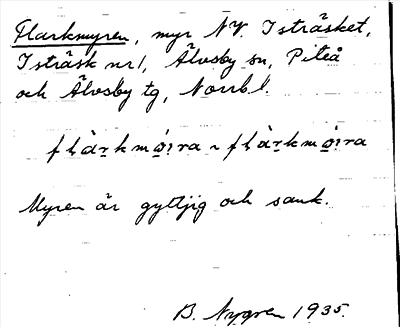 Flarkmyren, myr NV. Isträsket,
Isträsk nr 1, Älvsby sn, Piteå
och Älvsby tg, Norrb. l.
flàrkmö́ra ~ flàrkmö́ra
Myren är gyttjig och sank.
B. Nygren 1935.